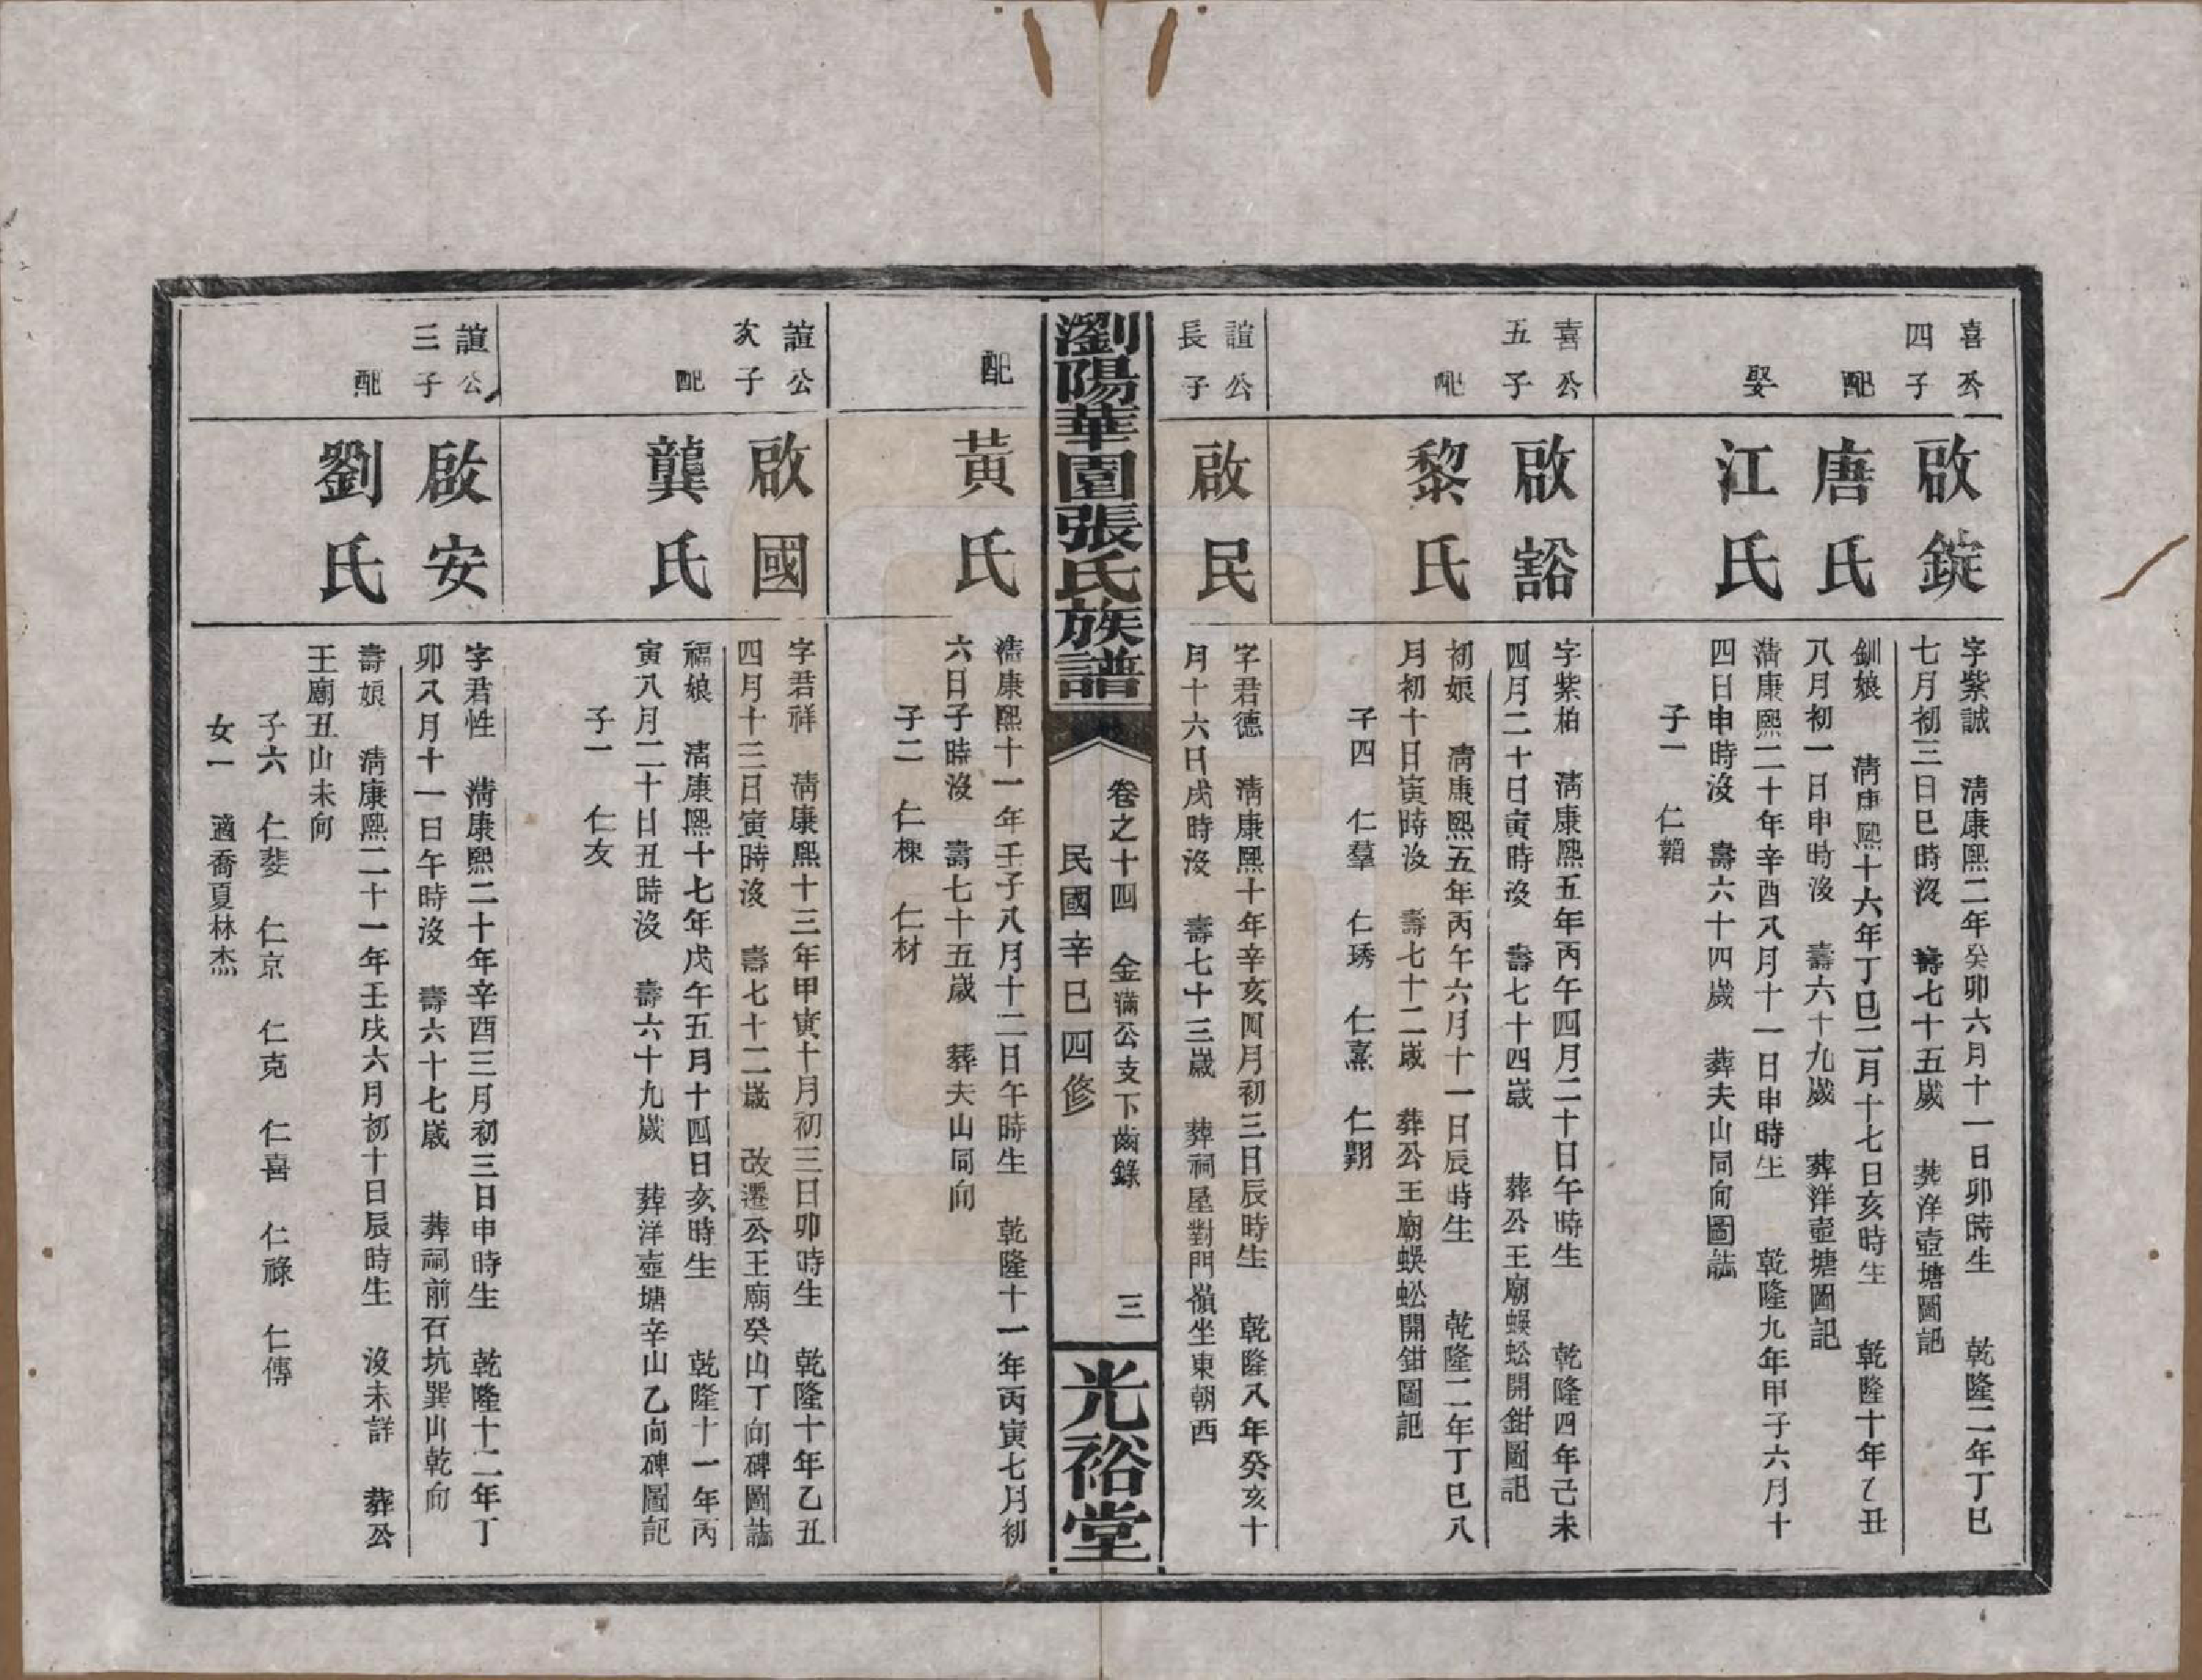 喜公
四子
啟錠
字紫誠　淸康熙二年癸卯六月十一日卯時生　乾隆二年丁巳
七月初三日巳時沒　壽七十五歲　葬洋壺塘圖記
配
唐氏
釧娘　淸康熙十六年丁巳二月十七日亥時生　乾隆十年乙丑
八月初一日申時沒　壽六十九歲　葬洋壺塘圖記
娶
江氏
淸康熙二十年辛酉八月十一日申時生　乾隆九年甲子六月十
四日申時沒　壽六十四歲　葬夫山同向圖誌
子一　仁韜
喜公
五子
啟豁
字紫柏　淸康熙五年丙午四月二十日午時生　乾隆四年己未
四月二十日寅時沒　壽七十四歲　葬公王廟蜈蚣開鉗圖記
配
黎氏
初娘　淸康熙五年丙午六月十一日辰時生　乾隆二年丁巳八
月初十日寅時沒　壽七十二歲　葬公王廟蜈蚣開鉗圖記
子四　仁羣　仁琇　仁熹　仁翾
誼公
長子
啟民
字君德　淸康熙十年辛亥四月初三日辰時生　乾隆八年癸亥十
月十六日戌時沒　壽七十三歲　葬祠屋對門嶺坐東朝西
瀏陽華園張氏族譜
卷之十四　金滿公支下齒錄　三
民國辛巳四修
光裕堂
配
黃氏
淸康熙十一年壬子八月十二日午時生　乾隆十一年丙寅七月初
六日子時沒　壽七十五歲　葬夫山同向
子二　仁棟　仁材
誼公
次子
啟國
字君祥　淸康熙十三年甲寅十月初三日卯時生　乾隆十年乙丑
四月十三日寅時沒　壽七十二歲　改遷公王廟癸山丁向碑圖誌
配
龔氏
福娘　淸康熙十七年戊午五月十四日亥時生　乾隆十一年丙
寅八月二十日丑時沒　壽六十九歲　葬洋壺塘辛山乙向碑圖記
子一　仁友
誼公
三子
啟安
字君性　淸康熙二十年辛酉三月初三日申時生　乾隆十二年丁
卯八月十一日午時沒　壽六十七歲　葬祠前石坑巽山乾向
配
劉氏
壽娘　淸康熙二十一年壬戌六月初十日辰時生　沒未詳　葬公
王廟丑山未向
子六　仁斐　仁京　仁克　仁喜　仁祿　仁傳
女一　適喬夏林杰